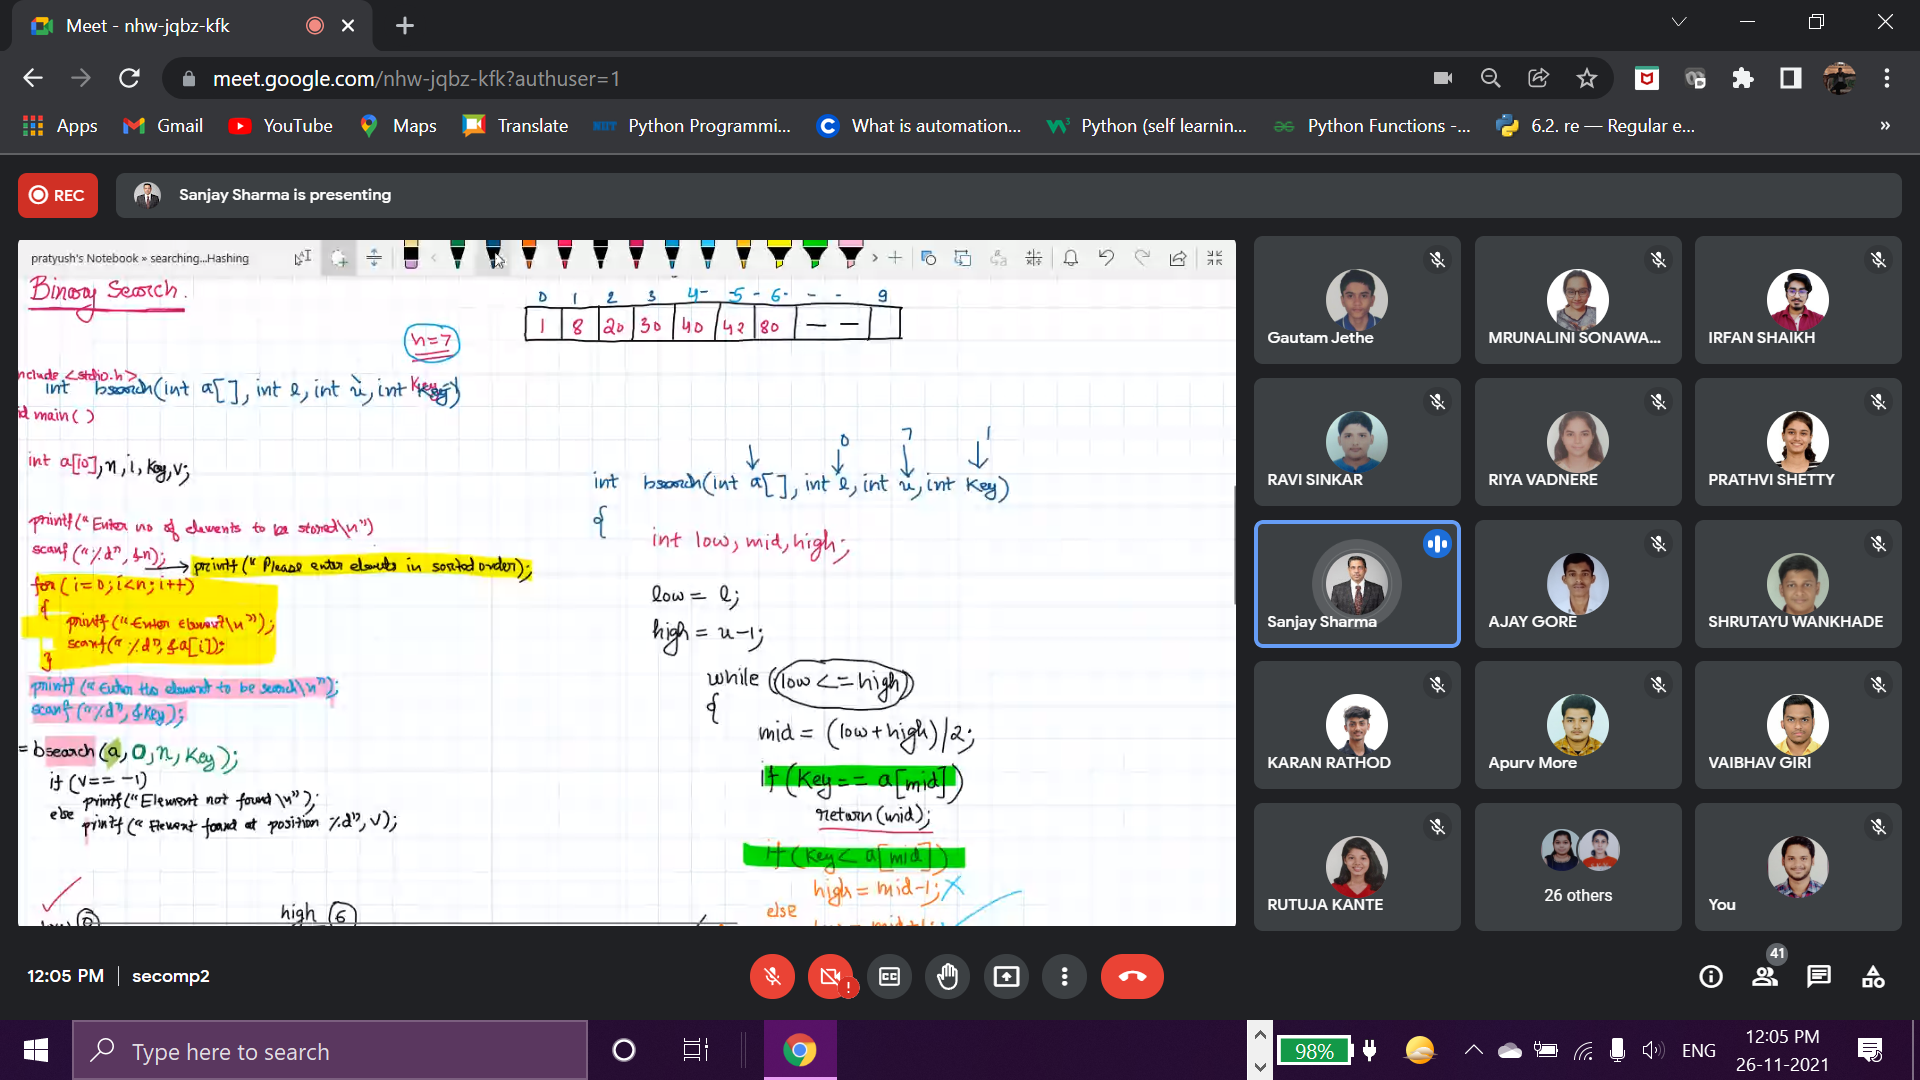 Meet - nhw-jqbz-kfk
meet.google.com/nhw-jqbz-kfk?authuser=1
Apps
Gmail
YouTube
Maps
Translate
NIIT
Python Programmi...
What is automation...
Python (self learnin...
Python Functions -...
6.2. re — Regular e...
»
REC
Sanjay Sharma is presenting
pratyush's Notebook » searching...Hashing
Binary Search.
0 1 2 3 4- -5 - 6- - - 9
1 8 20 30 40 42 80 — —
n=7
nclude <stdio.h>
int bsearch(int a[], int l, int u, int Key)
id main( )
int a[10], n, i, Key, v;
printf("Enter no of elements to be stored\n")
scanf("%d", &n);
printf("Please enter elements in sorted order);
for( i=0; i<n; i++)
{
printf("Enter element\n");
scanf("%d", &a[i]);
}
printf("Enter the element to be search\n");
scanf("%d", &Key);
= bsearch(a, 0, n, Key);
if (v== -1)
printf("Element not found\n");
else
printf("Element found at position %d", v);
high 6
0 7 1
int bsearch(int a[], int l, int u, int Key)
{
int low, mid, high;
low = l;
high = u-1;
while (low <= high)
{
mid = (low+high)/2;
if (Key == a[mid])
return(mid);
if (Key < a[mid])
high = mid-1; X
else
Gautam Jethe
MRUNALINI SONAWA...
IRFAN SHAIKH
RAVI SINKAR
RIYA VADNERE
PRATHVI SHETTY
Sanjay Sharma
AJAY GORE
SHRUTAYU WANKHADE
KARAN RATHOD
Apurv More
VAIBHAV GIRI
RUTUJA KANTE
26 others
You
12:05 PM | secomp2
41
Type here to search
98%
ENG
12:05 PM
26-11-2021